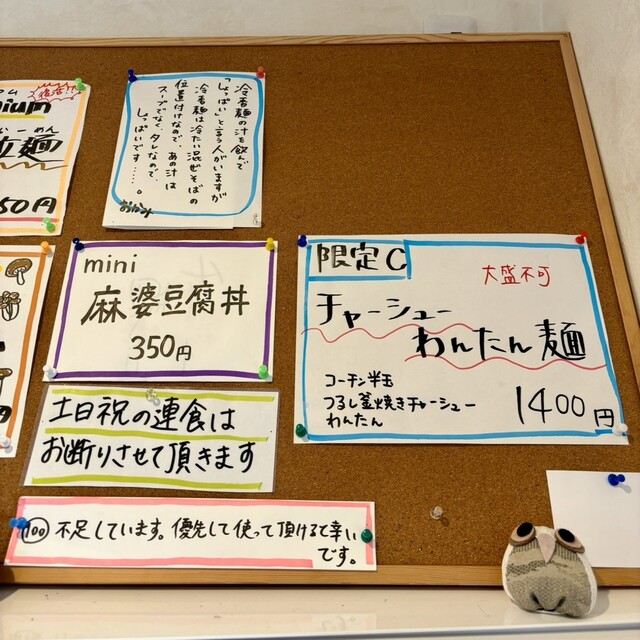 復活!!
nium
めん
麺
50円
冷香麺の汁を飲んで
「しょっぱい」と言う人がいますが
冷香麺は冷たい混ぜそばの
位置付けなので、あの汁は
スープでなく、タレなので、
しょっぱいです……。
おかみ
mini
麻婆豆腐丼
350円
限定C
大盛不可
チャーシュー
わんたん麺
コーチン半玉
つるし釜焼きチャーシュー
わんたん
1400円
土日祝の連食は
お断りさせて頂きます
100 不足しています。優先して使って頂けると幸い
です。